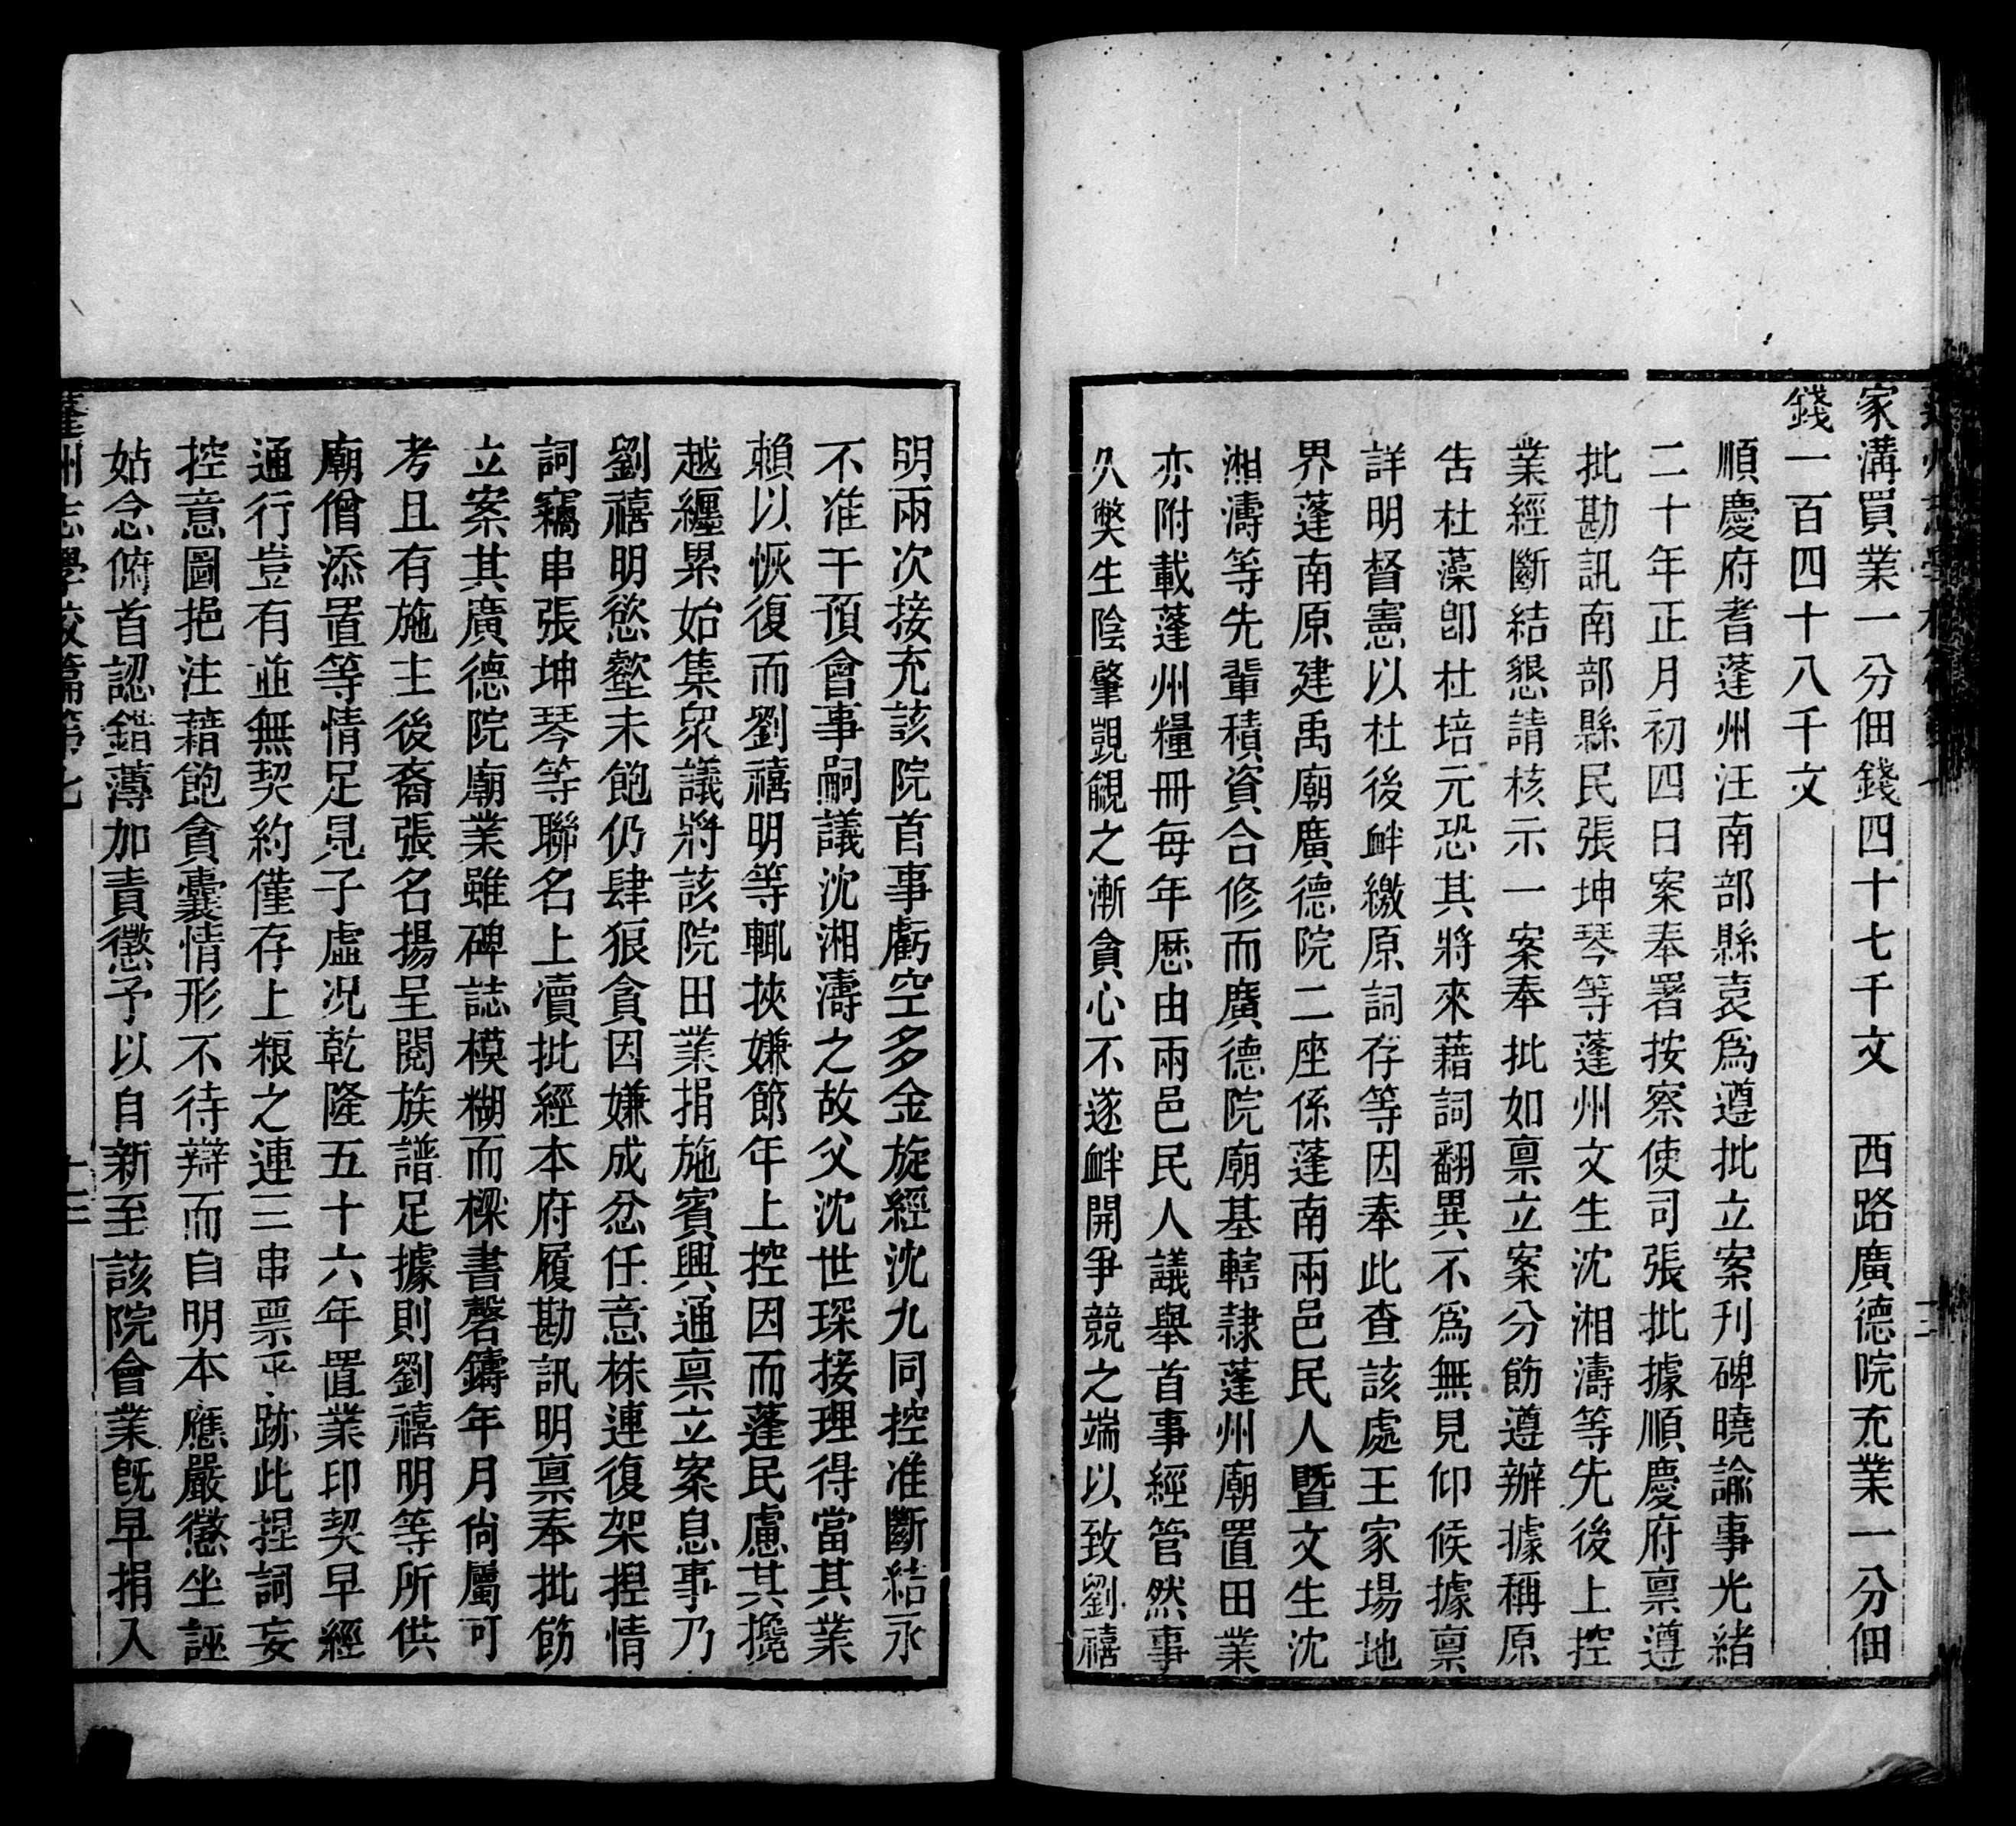 家溝買業一分佃錢四十七千文　西路廣德院充業一分佃
錢一百四十八千文
順慶府耆蓬州汪南部縣袁爲遵批立案刊碑曉諭事光緒
二十年正月初四日案奉署按察使司張批據順慶府禀遵
批勘訊南部縣民張坤琴等蓬州文生沈湘濤等先後上控
業經斷結懇請核示一案奉批如禀立案分飭遵辦據稱原
告杜藻卽杜培元恐其將來藉詞翻異不爲無見仰候據禀
詳明督憲以杜後衅繳原詞存等因奉此查該處王家場地
界蓬南原建禹廟廣德院二座係蓬南兩邑民人暨文生沈
湘濤等先輩積資合修而廣德院廟基轄隸蓬州廟置田業
亦附載蓬州糧冊每年歷由兩邑民人議舉首事經管然事
久獘生陰肇覬覦之漸貪心不遂衅開爭競之端以致劉禧
明兩次接充該院首事虧空多金旋經沈九同控准斷結永
不准干預會事嗣議沈湘濤之故父沈世琛接理得當其業
賴以恢復而劉禧明等輒挾嫌節年上控因而蓬民慮其攙
越纏累始集衆議將該院田業捐施賓興通禀立案息事乃
劉禧明慾壑未飽仍肆狠貪因嫌成忿任意株連復架捏情
詞竊串張坤琴等聯名上瀆批經本府履勘訊明禀奉批飭
立案其廣德院廟業雖碑誌模糊而樑書磬鑄年月尙屬可
考且有施主後裔張名揚呈閱族譜足據則劉禧明等所供
廟僧添置等情足見子虛况乾隆五十六年置業印契早經
通行豈有並無契約僅存上粮之連三串票𠀤跡此捏詞妄
控意圖挹注藉飽貪囊情形不待辯而自明本應嚴懲坐誣
姑念俯首認錯薄加責懲予以自新至該院會業旣早捐入
蓬州志學校篇第七　十三